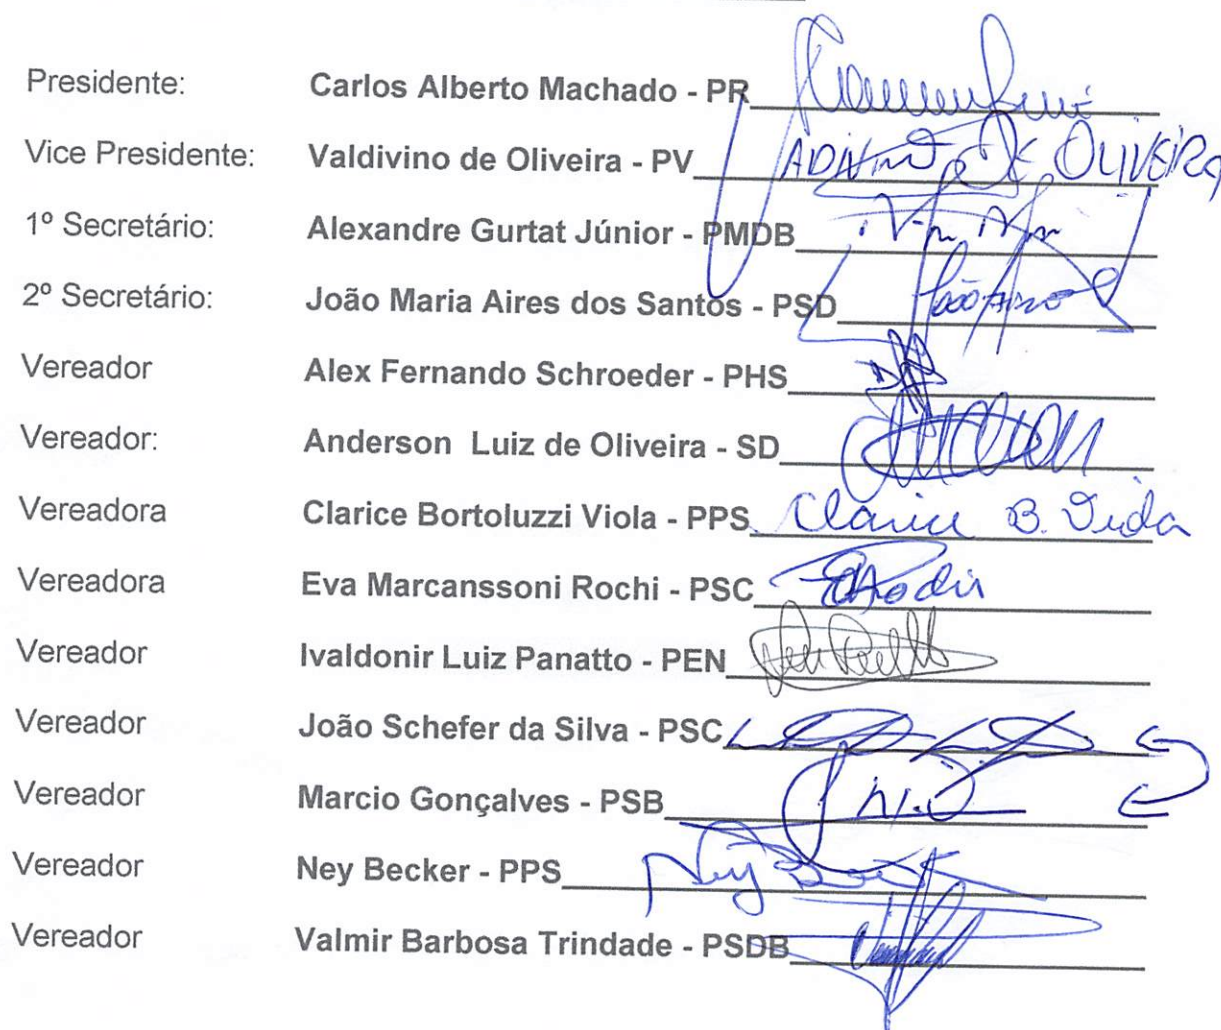 Presidente: Carlos Alberto Machado - PR
Vice Presidente: Valdivino de Oliveira - PV DE OLIVEIRA
1º Secretário: Alexandre Gurtat Júnior - PMDB
2º Secretário: João Maria Aires dos Santos - PSD
Vereador Alex Fernando Schroeder - PHS
Vereador: Anderson Luiz de Oliveira - SD
Vereadora Clarice Bortoluzzi Viola - PPS Clarice B.
Vereadora Eva Marcanssoni Rochi - PSC
Vereador Ivaldonir Luiz Panatto - PEN
Vereador João Schefer da Silva - PSC
Vereador Marcio Gonçalves - PSB
Vereador Ney Becker - PPS Ney
Vereador Valmir Barbosa Trindade - PSDB